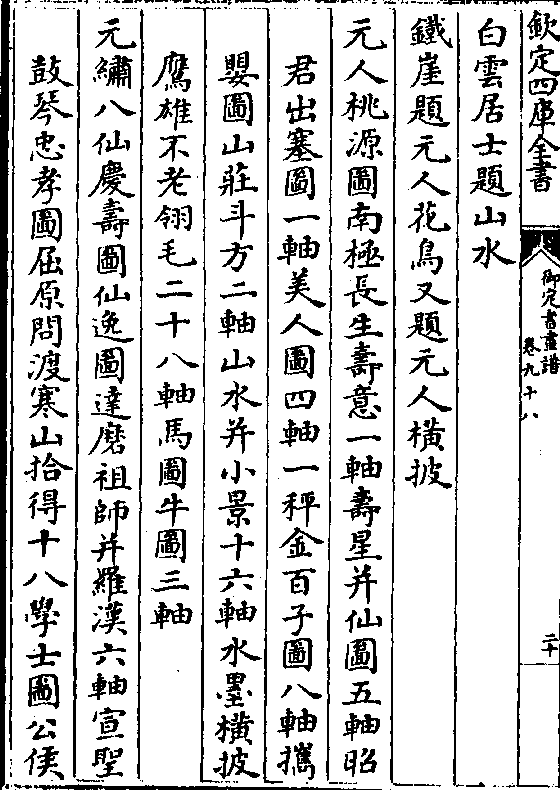 欽定四庫全書
御定書畫譜
卷九十八
二十
白雲居士題山水
鐵崖題元人花鳥又題元人橫披
元人桃源圖南極長生壽意一軸壽星并仙圖五軸昭
君出塞圖一軸美人圖四軸一秤金百子圖八軸攜
嬰圖山莊斗方二軸山水并小景十六軸水墨橫披
鷹雄不老翎毛二十八軸馬圖牛圖三軸
元繡八仙慶壽圖仙逸圖達磨祖師并羅漢六軸宣聖
鼓琴忠孝圖屈原問渡寒山拾得十八學士圖公侯